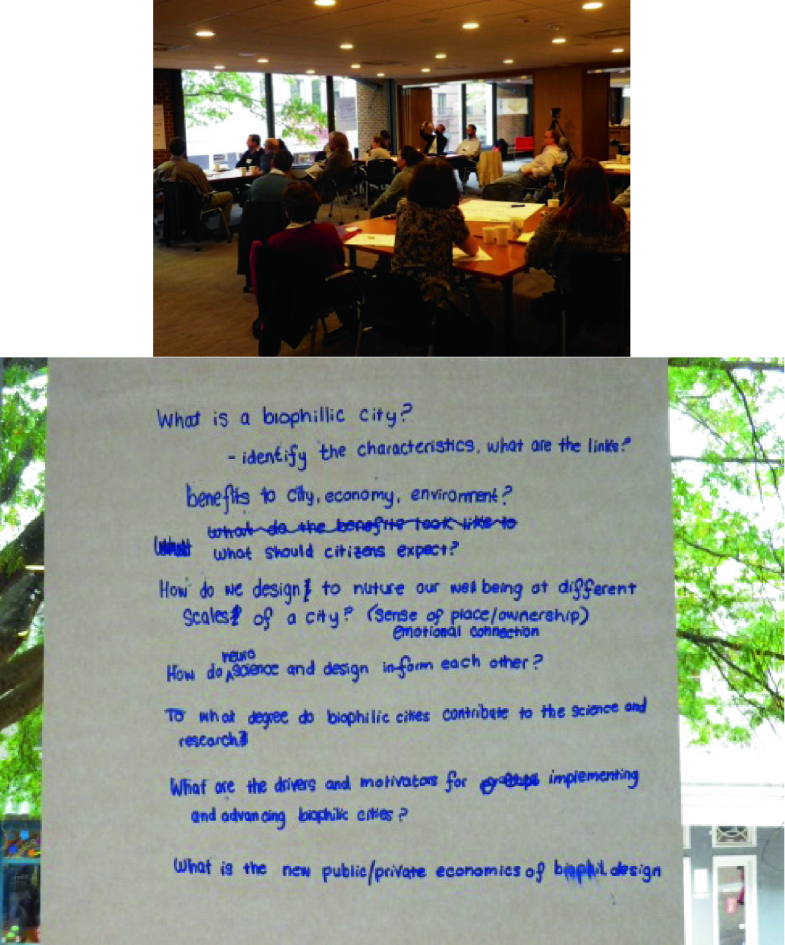 What is a biophillic city?
- identify the characteristics, what are the links?
benefits to city, economy, environment?
what do the benefits look like to
what should citizens expect?
How do we design to nuture our well being at different
scales of a city? (sense of place/ownership)
emotional connection
neuro
How do science and design inform each other?
To what degree do biophilic cities contribute to the science and
research?
What are the drivers and motivators for implementing
and advancing biophilic cities?
What is the new public/private economics of biophil design